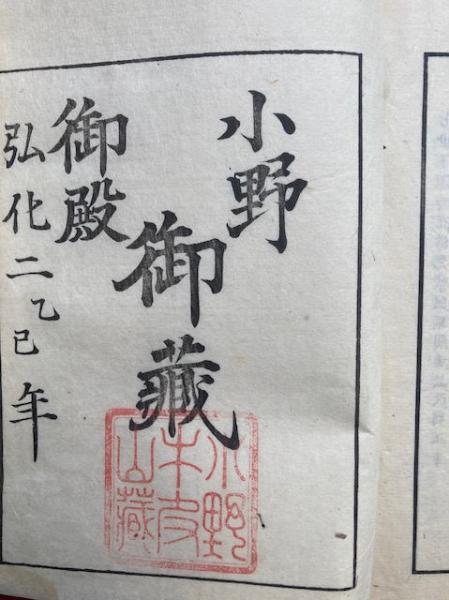 小野
御藏
御殿
弘化二乙巳年
小野
牛皮
山藏